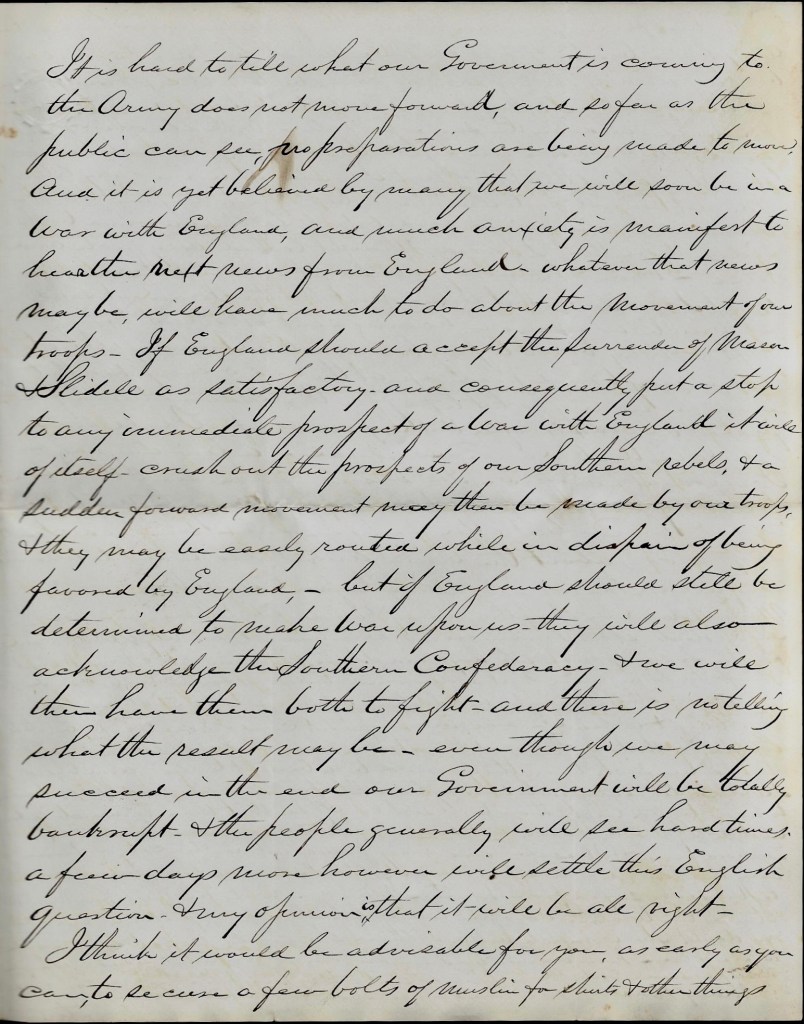 It is hard to till what our Goverment is coming to.
the Army does not move forward, and so far as the
public can see, no preparations are being made to move.
And it is yet believed by many that we will soon be in a
War with England, and much anxiety is mainfest to
hear the next news from England - whatever that news
may be, will have much to do about the movement of our
troops - If England should accept the surrender of Mason
& Slidell as satisfactory - and consequently put a stop
to any immediate prospect of a War with England it will
of itself - crush out the prospects of our Southern rebels, & a
sudden forward movement may then be made by our troops,
& they may be easily routed while in dispair of being
favored by England, - but if England should still be
determined to make War upon us - they will also
acknowledge the Southern Confederacy - & we will
then have them both to fight - and there is no telling
what the result may be - even though we may
succeed in the end our Government will be totally
bankrupt - & the people generally will see hard times.
a few days more however will settle this English
question - & my opinion is, that it will be all right -
I think it would be advisable for you, as early as you
can, to secure a few bolts of muslin for shirts & other things